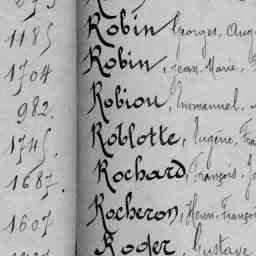 1185 Robin Georges, Aug
1704 Robin, Jean-Marie,
982. Robiou, Emmanuel,
1745. Roblotte, Eugène, Fra
1687. Rochard, François-Jo
1607 Rocheron, Henri-François
Roger, Gustave